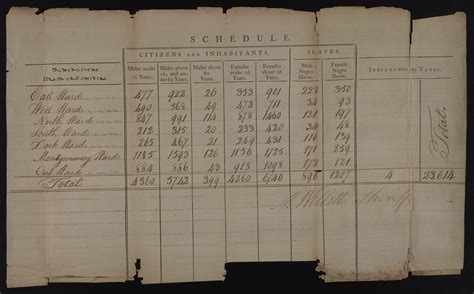 SCHEDULE.
CITIZENS and INHABITANTS. SLAVES.
Males under 16 Years. Males above 16, and under 60 Years. Males above 60 Years. Females under 16 Years. Females above 16 Years. Male Negro Slaves. Female Negro Slaves. INDIANS who pay TAXES. Total.
East Ward 477 922 26 353 901 228 350
West Ward 490 568 49 473 711 34 93
North Ward 847 991 114 878 1460 121 197
South Ward 212 315 20 233 420 34 48
Dock Ward 265 467 21 249 431 116 159
Montgomery Ward 1185 1593 126 1156 1719 171 259
Out Ward 884 886 43 918 1098 192 121
Total 4360 5742 399 4260 6740 896 1207 4 23,614
Willett Sheriff